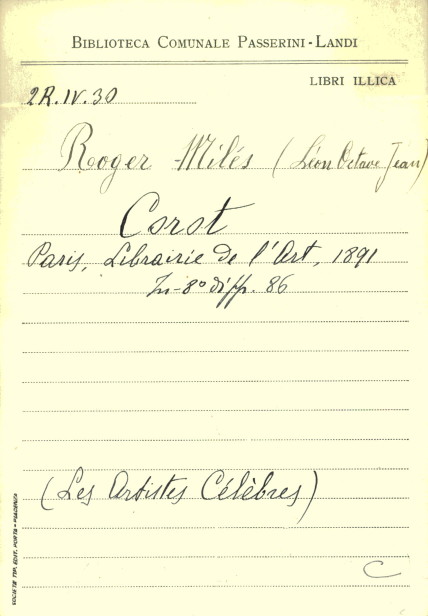 BIBLIOTECA COMUNALE PASSERINI-LANDI
LIBRI ILLICA
2R.IV.30
Roger Milés (Léon Octave Jean)
Corot
Paris, Librairie de l'Art, 1891
In-8º di pp. 86
(Les Artistes Célèbres)
C